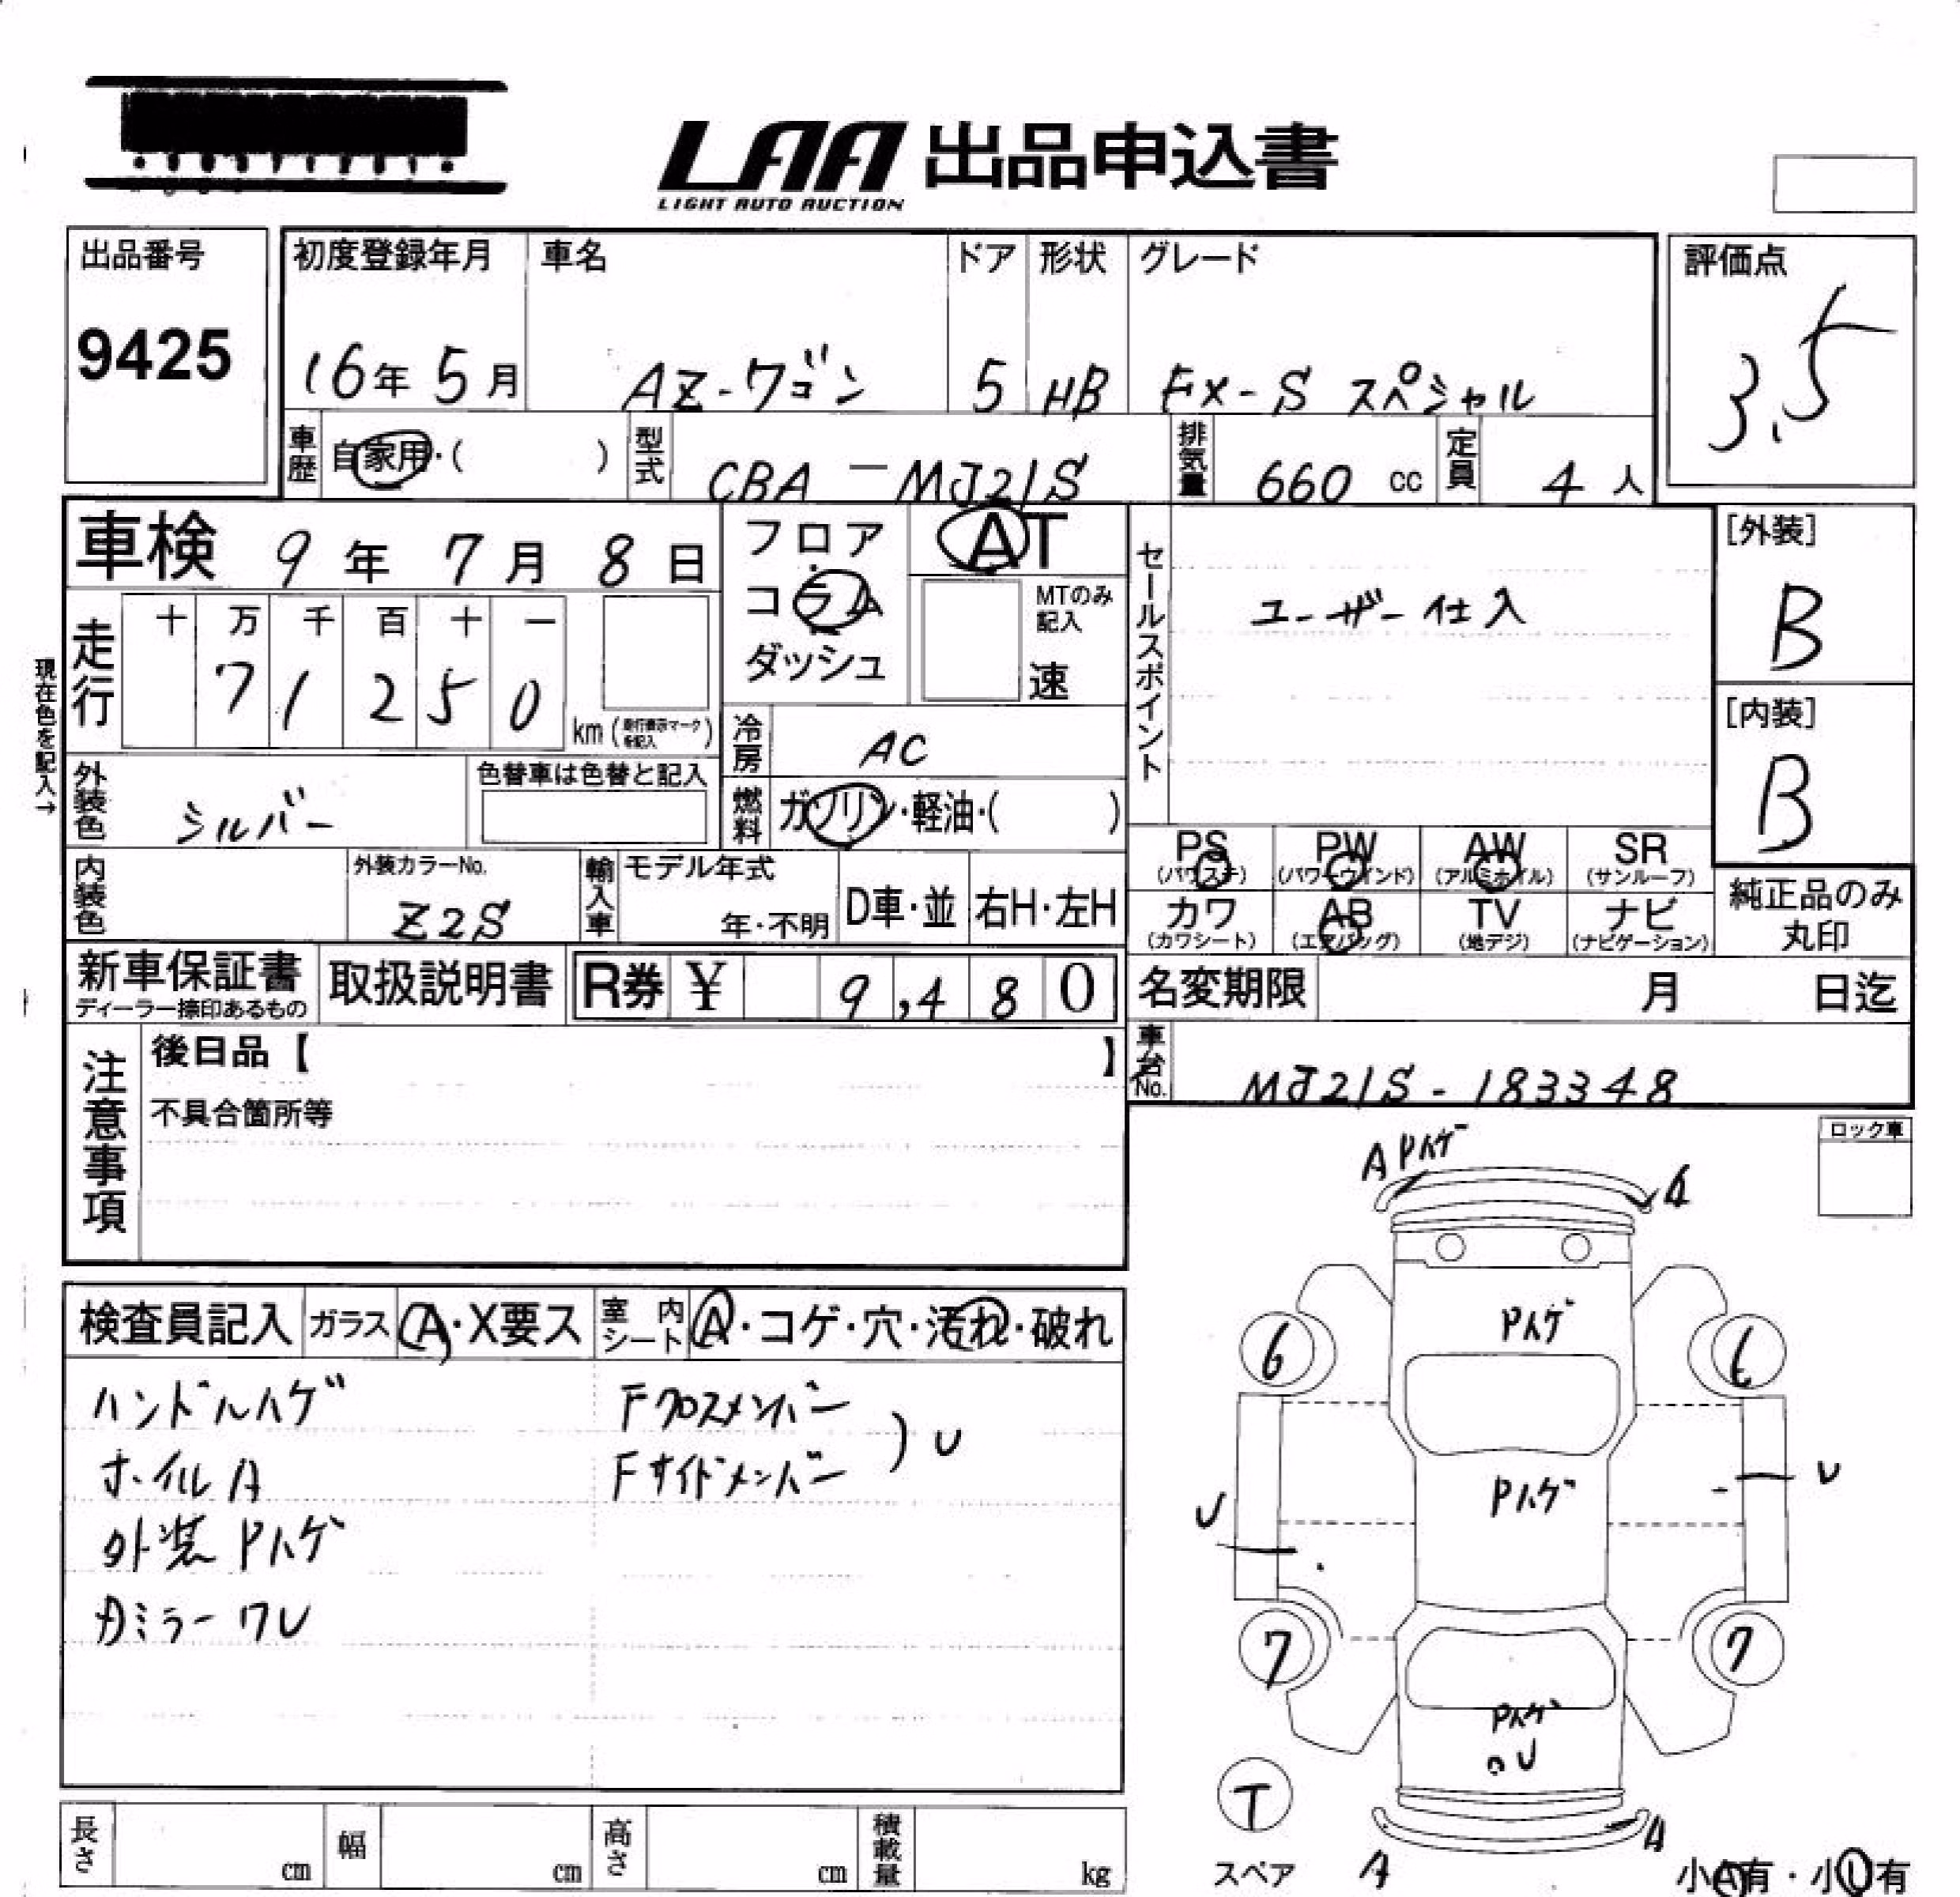 LAA 出品申込書
LIGHT AUTO AUCTION
出品番号
9425
初度登録年月
16年 5月
車名
AZ-ワゴン
ドア
5
形状
HB
グレード
FX-S スペシャル
評価点
3.5
車歴 自家用・( )
型式 CBA-MJ21S
排気量 660 cc
定員 4 人
車検 9年 7月 8日
フロア
コラム
ダッシュ
AT
MTのみ
記入
速
セールスポイント
ユーザー仕入
[外装]
B
[内装]
B
現在色を記入→
走行
十 万 千 百 十 一
7 1 2 5 0
km(走行表示マークを記入)
冷房 AC
燃料 ガソリン・軽油・( )
外装色 シルバー
色替車は色替と記入
内装色
外装カラーNo.
Z2S
輸入車
モデル年式
年・不明
D車・並
右H・左H
PS
(パワステ)
PW
(パワーウインド)
AW
(アルミホイル)
SR
(サンルーフ)
カワ
(カワシート)
AB
(エアバッグ)
TV
(地デジ)
ナビ
(ナビゲーション)
純正品のみ
丸印
新車保証書
ディーラー捺印あるもの
取扱説明書
R券 ¥ 9,480
名変期限 月 日迄
車台No. MJ21S-183348
注意事項
後日品【 】
不具合箇所等
ロック車
検査員記入
ガラス A・X要ス
室内シート A・コゲ・穴・汚れ・破れ
ハンドルハゲ
ホイルA
外装Pハゲ
カミラーワレ
Fクロスメンバー
Fサイドメンバー
) U
A Pハゲ
A
Pハゲ
6
6
Pハゲ
U
U
7
7
Pハゲ
U
T
スペア
A
A
小A有・小U有
長さ cm
幅 cm
高さ cm
積載量 kg